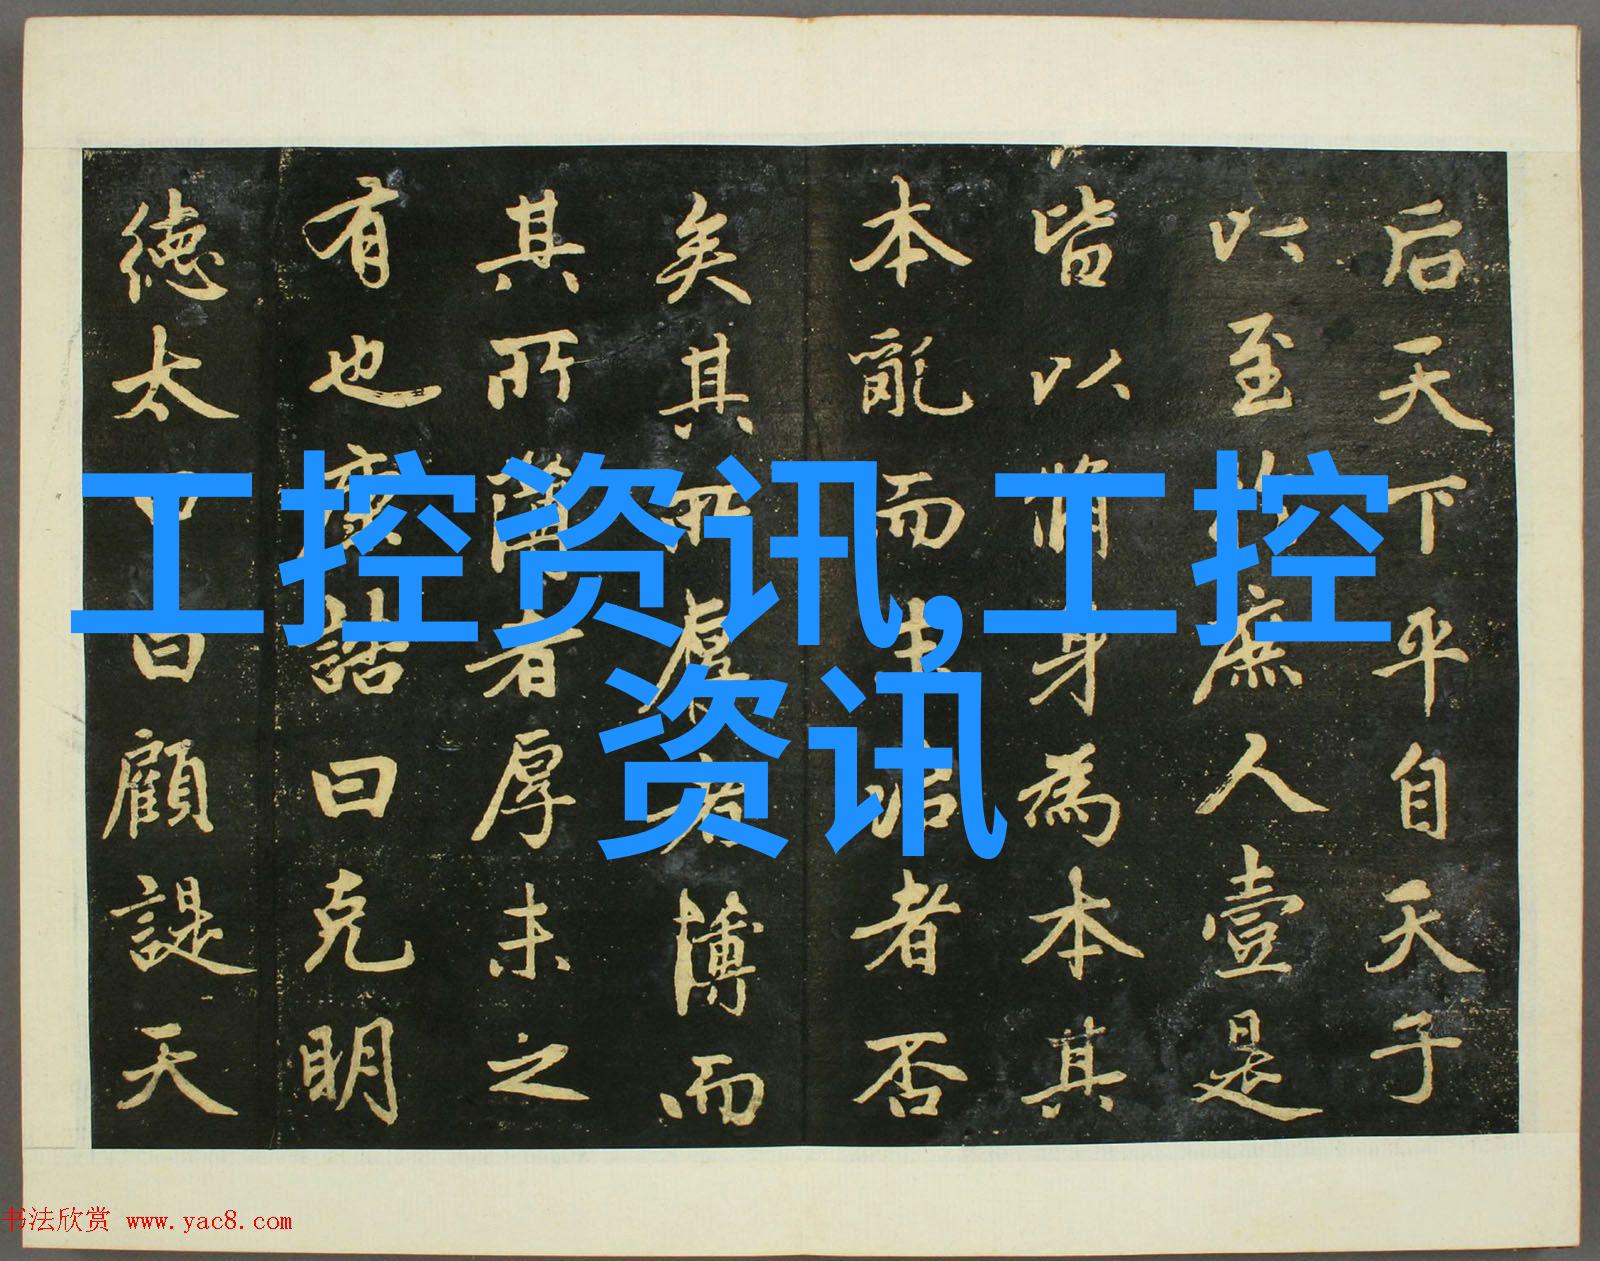 后天下平自天子
以至於庶人壹是
皆以脩身為本其
本亂而治者否
矣其所厚者薄而
其所薄者厚未之
有也康誥曰克明
德太甲曰顧諟天
工控资讯,工控
资讯
书法欣赏 www.yac8.com